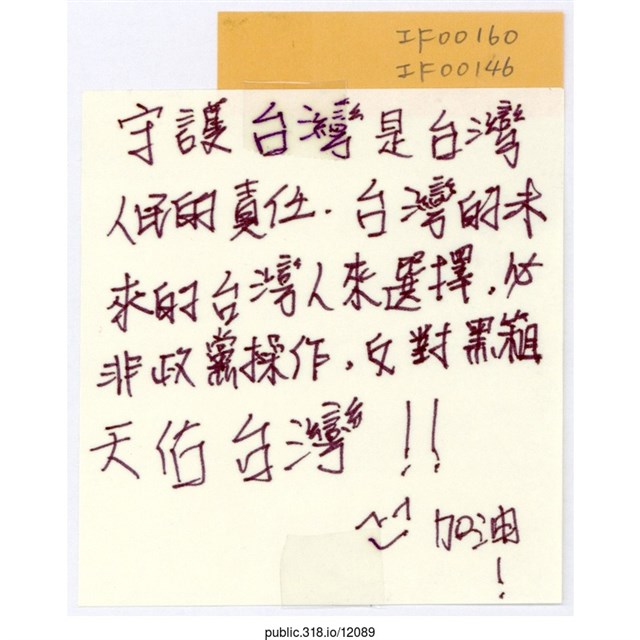 IF00160
IF00146
守護台灣是台灣
人民的責任．台灣的未
來的台灣人來選擇，必
非政黨操作，反對黑箱
天佑台灣！！
加油！
public.318.io/12089